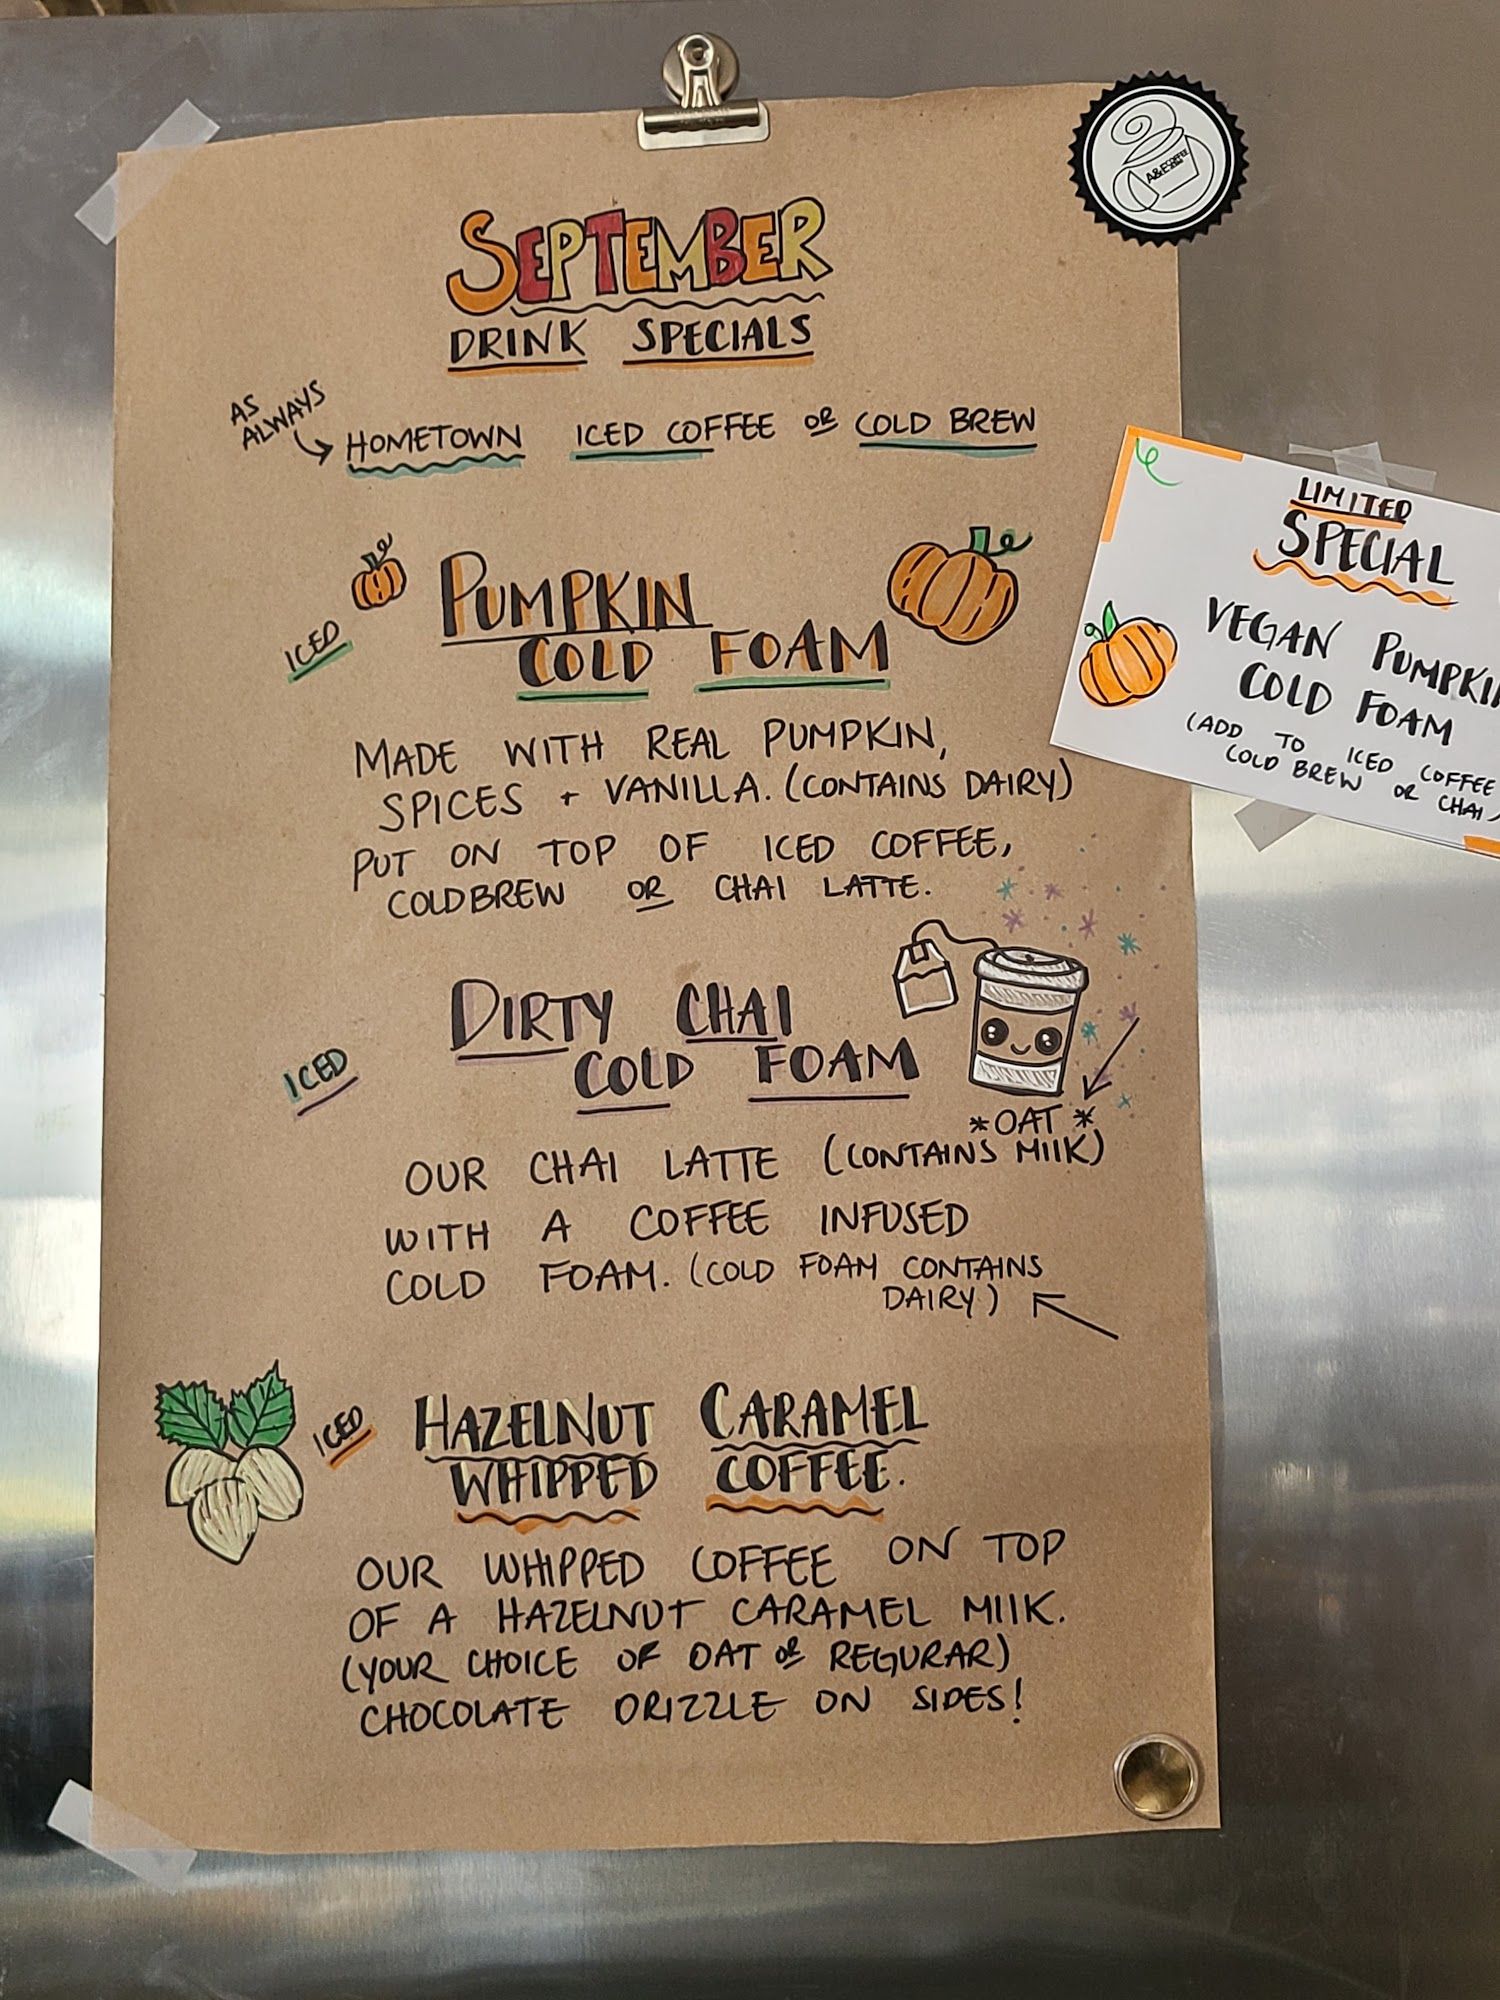 SEPTEMBER
DRINK SPECIALS
AS
ALWAYS
HOMETOWN ICED COFFEE OR COLD BREW
ICED
PUMPKIN
COLD FOAM
MADE WITH REAL PUMPKIN,
SPICES + VANILLA. (CONTAINS DAIRY)
PUT ON TOP OF ICED COFFEE,
COLDBREW OR CHAI LATTE.
ICED
DIRTY CHAI
COLD FOAM
*OAT*
OUR CHAI LATTE (CONTAINS MIlK)
WITH A COFFEE INFUSED
COLD FOAM. (COLD FOAM CONTAINS
DAIRY)
ICED
HAZELNUT CARAMEL
WHIPPED COFFEE.
OUR WHIPPED COFFEE ON TOP
OF A HAZELNUT CARAMEL MIlK.
(YOUR CHOICE OF OAT OR REGURAR)
CHOCOLATE DRIZZLE ON SIDES!
LIMITED
SPECIAL
VEGAN PUMPKI
COLD FOAM
(ADD TO ICED COFFEE
COLD BREW OR CHAI)
A&E COFFEE